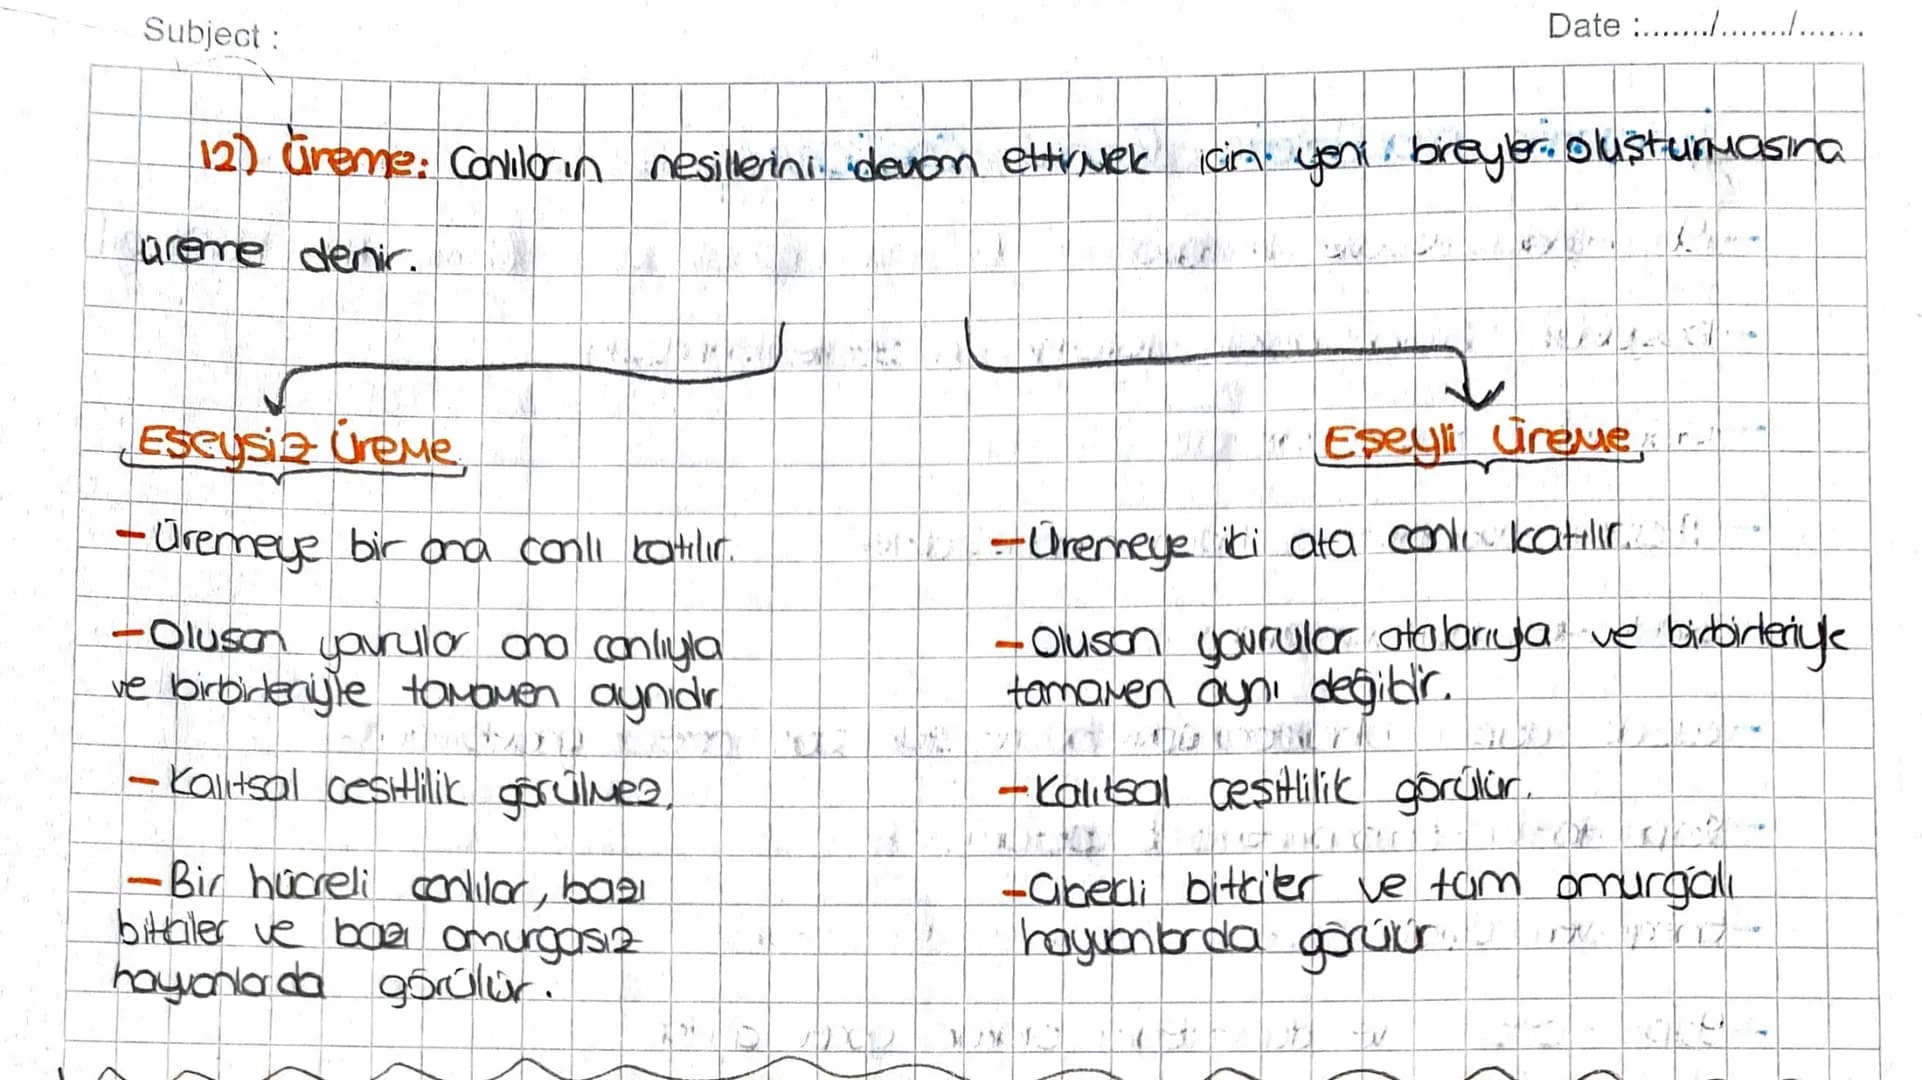 Subject :
Date :......./......./.......
12) Üreme: Canlıların nesillerini devam ettirmek için yeni bireyler oluşturmasına
üreme denir.
Eşeysiz Üreme
- Üremeye bir ana canlı katılır.
- Oluşan yavrular ana canlıyla
ve birbirleriyle tamamen aynıdır.
- Kalıtsal çeşitlilik görülmez.
- Bir hücreli canlılar, bazı
bitkiler ve bazı omurgasız
hayvanlarda görülür.
Eşeyli Üreme
- Üremeye iki ata canlı katılır.
- Oluşan yavrular atalarıyla ve birbirleriyle
tamamen aynı değildir.
- Kalıtsal çeşitlilik görülür.
- Çiçekli bitkiler ve tüm omurgalı
hayvanlarda görülür.